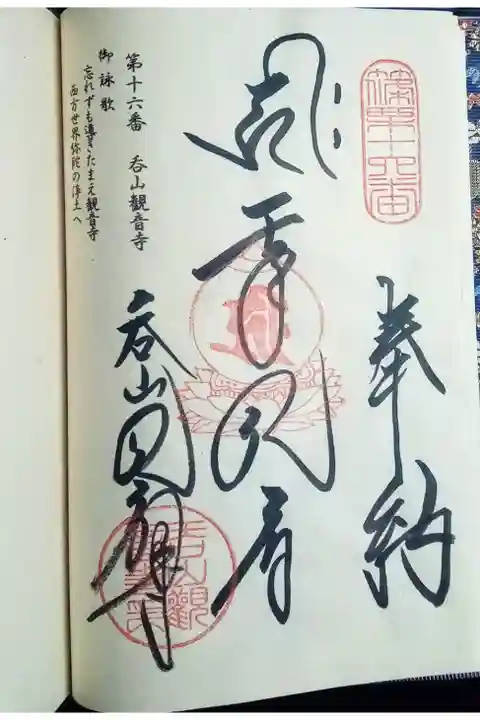 篠栗十六番
奉納
千手観音
呑山観音寺
第十六番 呑山觀音寺
御詠歌
忘れずも導きたまえ觀音寺
西方世界弥陀の浄土へ